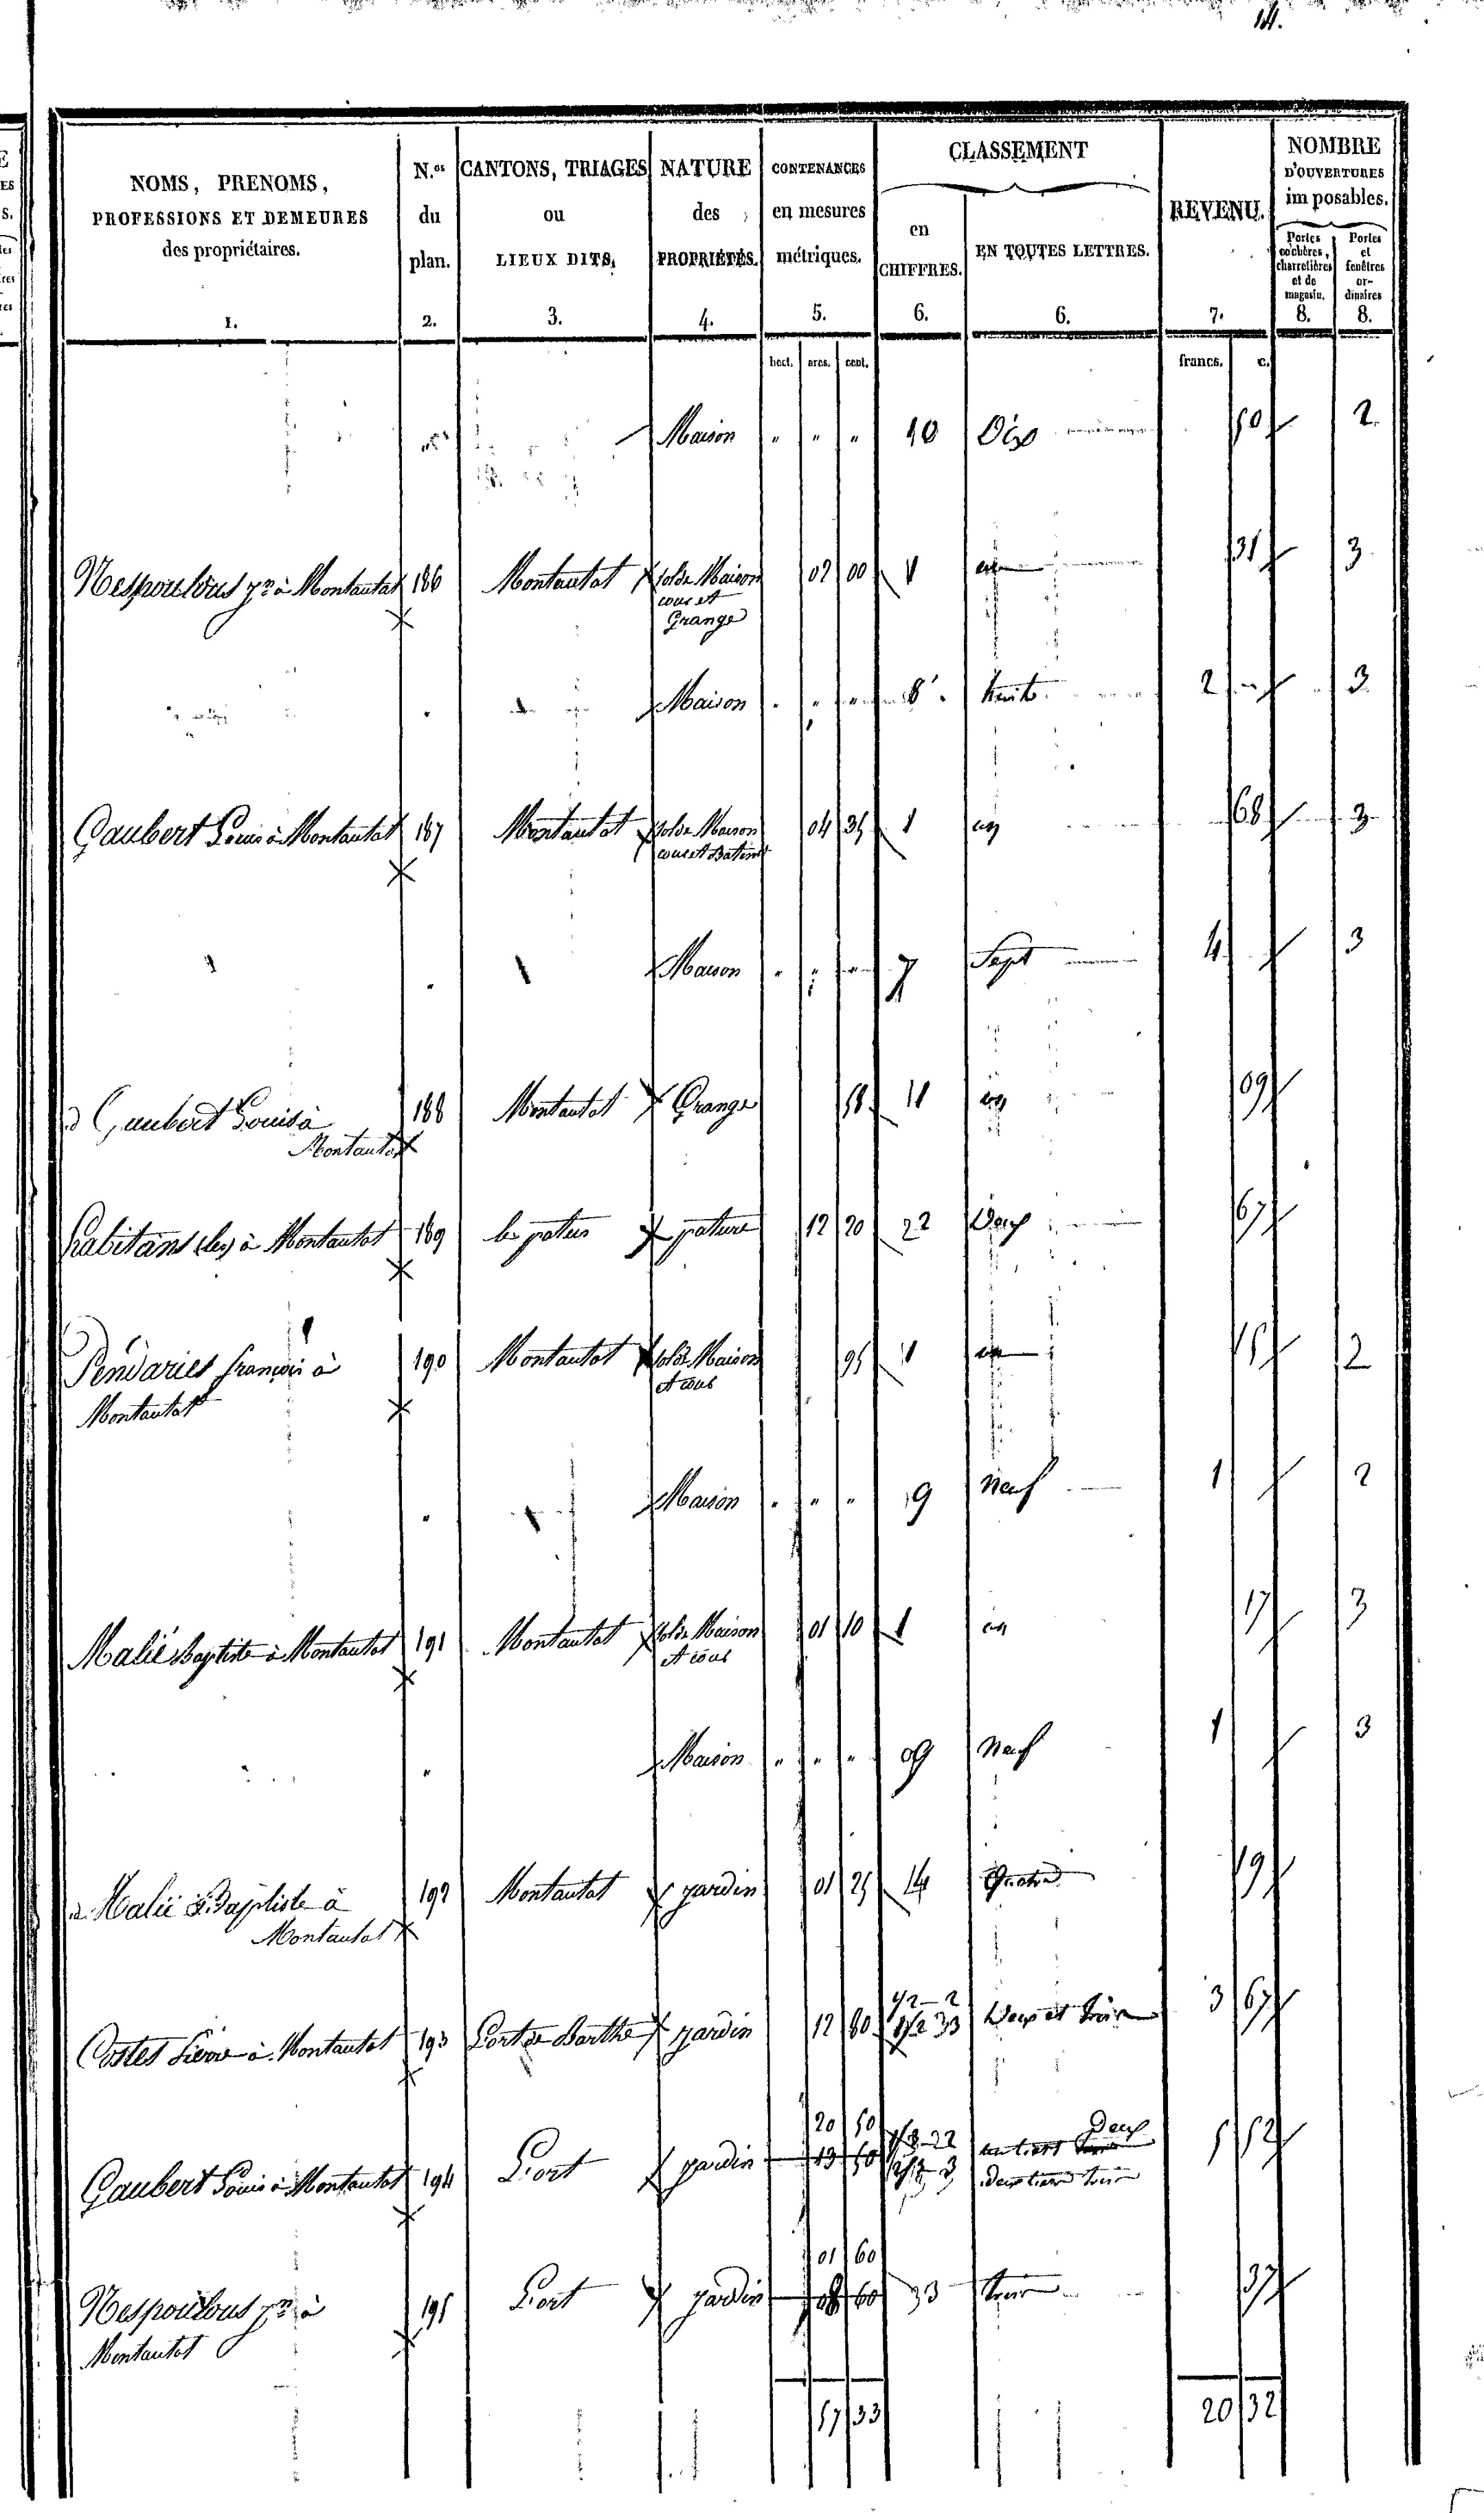 14.
NOMS, PRENOMS, PROFESSIONS ET DEMEURES des propriétaires. 1.
N.os du plan. 2.
CANTONS, TRIAGES ou LIEUX DITS, 3.
NATURE des PROPRIÉTÉS. 4.
CONTENANCES en mesures métriques. 5.
CLASSEMENT
en CHIFFRES. 6.
EN TOUTES LETTRES. 6.
REVENU. 7.
NOMBRE D'OUVERTURES imposables.
Portes cochères, charretières et de magasin. 8.
Portes et fenêtres ordinaires 8.
hect. ares. cent. francs. c.
Maison " " " 10 Dix 50 2
Nespoulous à Montautat 186 Montautat sol de Maison 02 00 1 un 31 3
cour et
Grange
Maison 8 huit 2 3
Gaubert Louis à Montautat 187 Montautat sol de Maison 04 35 1 un 68 3
cour et Batimt
Maison 7 Sept 4 3
Gaubert Louis à 188 Montautat Grange 58 1 un 09
Montautat
habitans (les) à Montautat 189 le patus pature 12 20 22 Deux 67
Pendaries françois à 190 Montautat sol de Maison 95 1 un 15 2
Montautat et cour
Maison " " " 9 Neuf 1 2
Malié Baptiste à Montautat 191 Montautat sol de Maison 01 10 1 un 17 3
et cour
Maison " " " 09 Neuf 1 3
Malié Baptiste à 192 Montautat jardin 01 25 14 Quatre 19
Montautat
1/2 2
Costes Pierre à Montautat 193 jardin 12 80 1/2 33 Deux et trois 3 67
20 50 22 Deux
Gaubert Louis à Montautat 194 Lort jardin 13 50 un tiers 5 52
deux tiers trois
01 60
Nespoulous à 195 Lort jardin 60 33 trois 37
Montautat
57 33 20 32